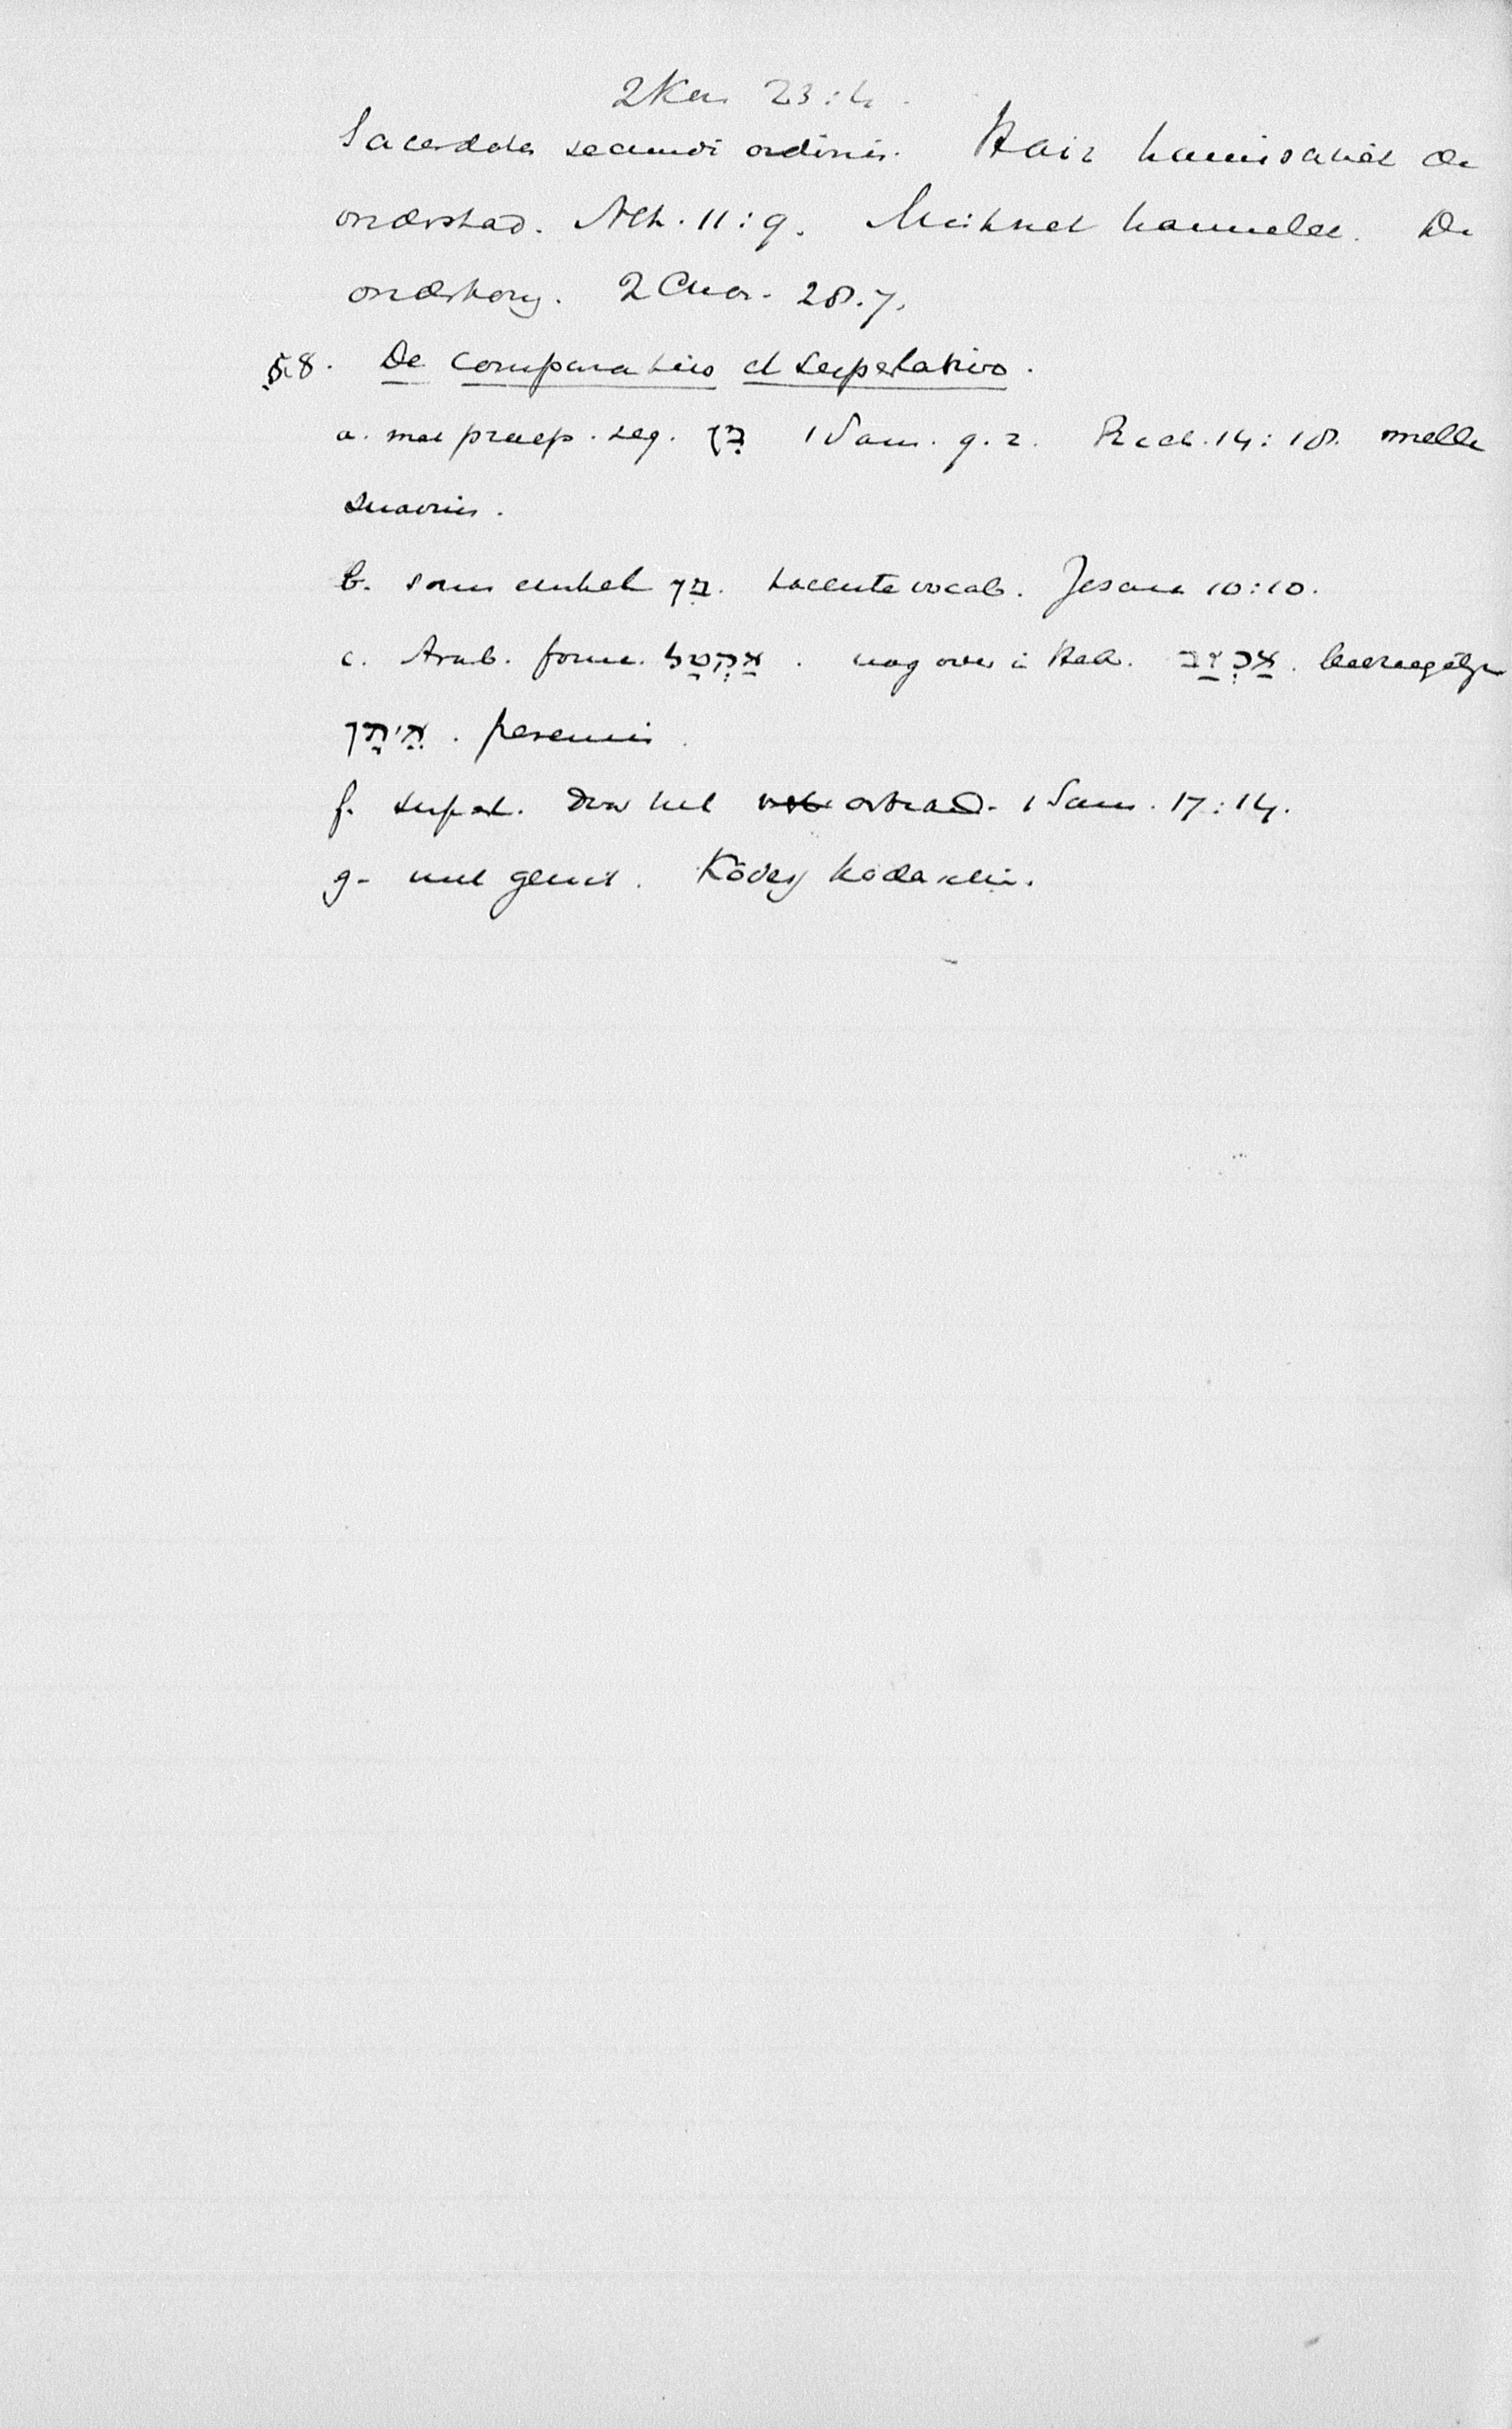 2 Kon 23:4.
Sacerdotes secundi ordinis. Hair hammisjneh De
onderstad. Neh. 11:9. Misjneh hammelec. De
onderkon. 2 Chron. 28.7.
§8. De comparativo et superlativo.
a. met praep. seq. מִן 1 Sam. 9.2. Rech. 14:18. melle
suavius.
b. soms enkel מִן. tacente vocab. Jesaia 10:10.
c. Arab. form. אַקְטַל. nog over in Heb. אַכְזַב. bedriegelijk
אֵיתָן. perennis.
f. superl. door het artic. 1 Sam. 17:14.
g. met genit. Kodesj kodasjim.